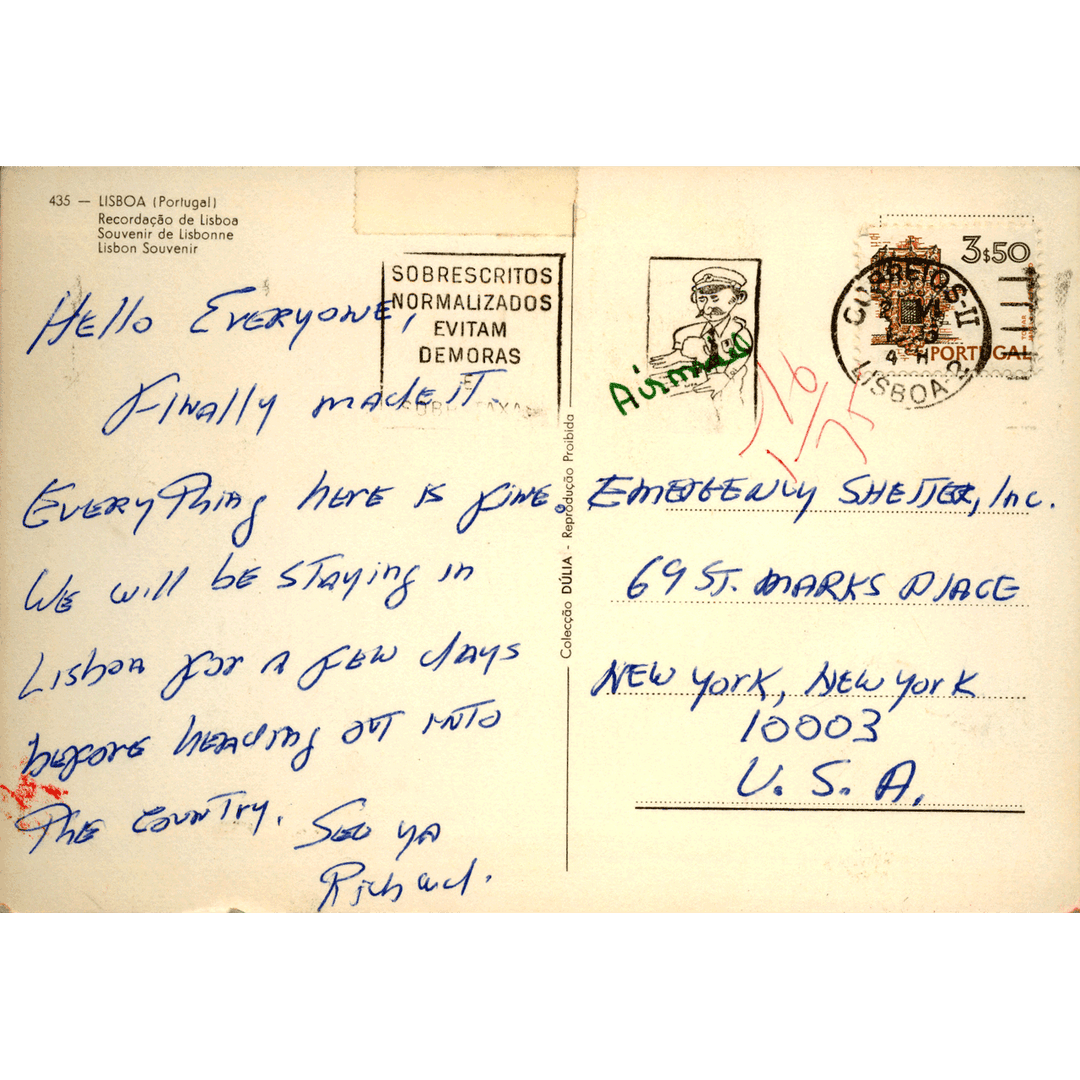 435 — LISBOA (Portugal)
Recordação de Lisboa
Souvenir de Lisbonne
Lisbon Souvenir
SOBRESCRITOS
NORMALIZADOS
EVITAM
DEMORAS
E
Hello Everyone,
Finally made it.
Everything here is fine.
We will be staying in
Lisboa for a few days
before heading out into
the country. See ya
Richard.
Colecção DÚLIA - Reprodução Proibida
3$50
PORTUGAL
CORREIOS-II
LISBOA-2
Airmail
Emergency Shelter, Inc.
69 St. Marks Place
New York, New York
10003
U.S.A.